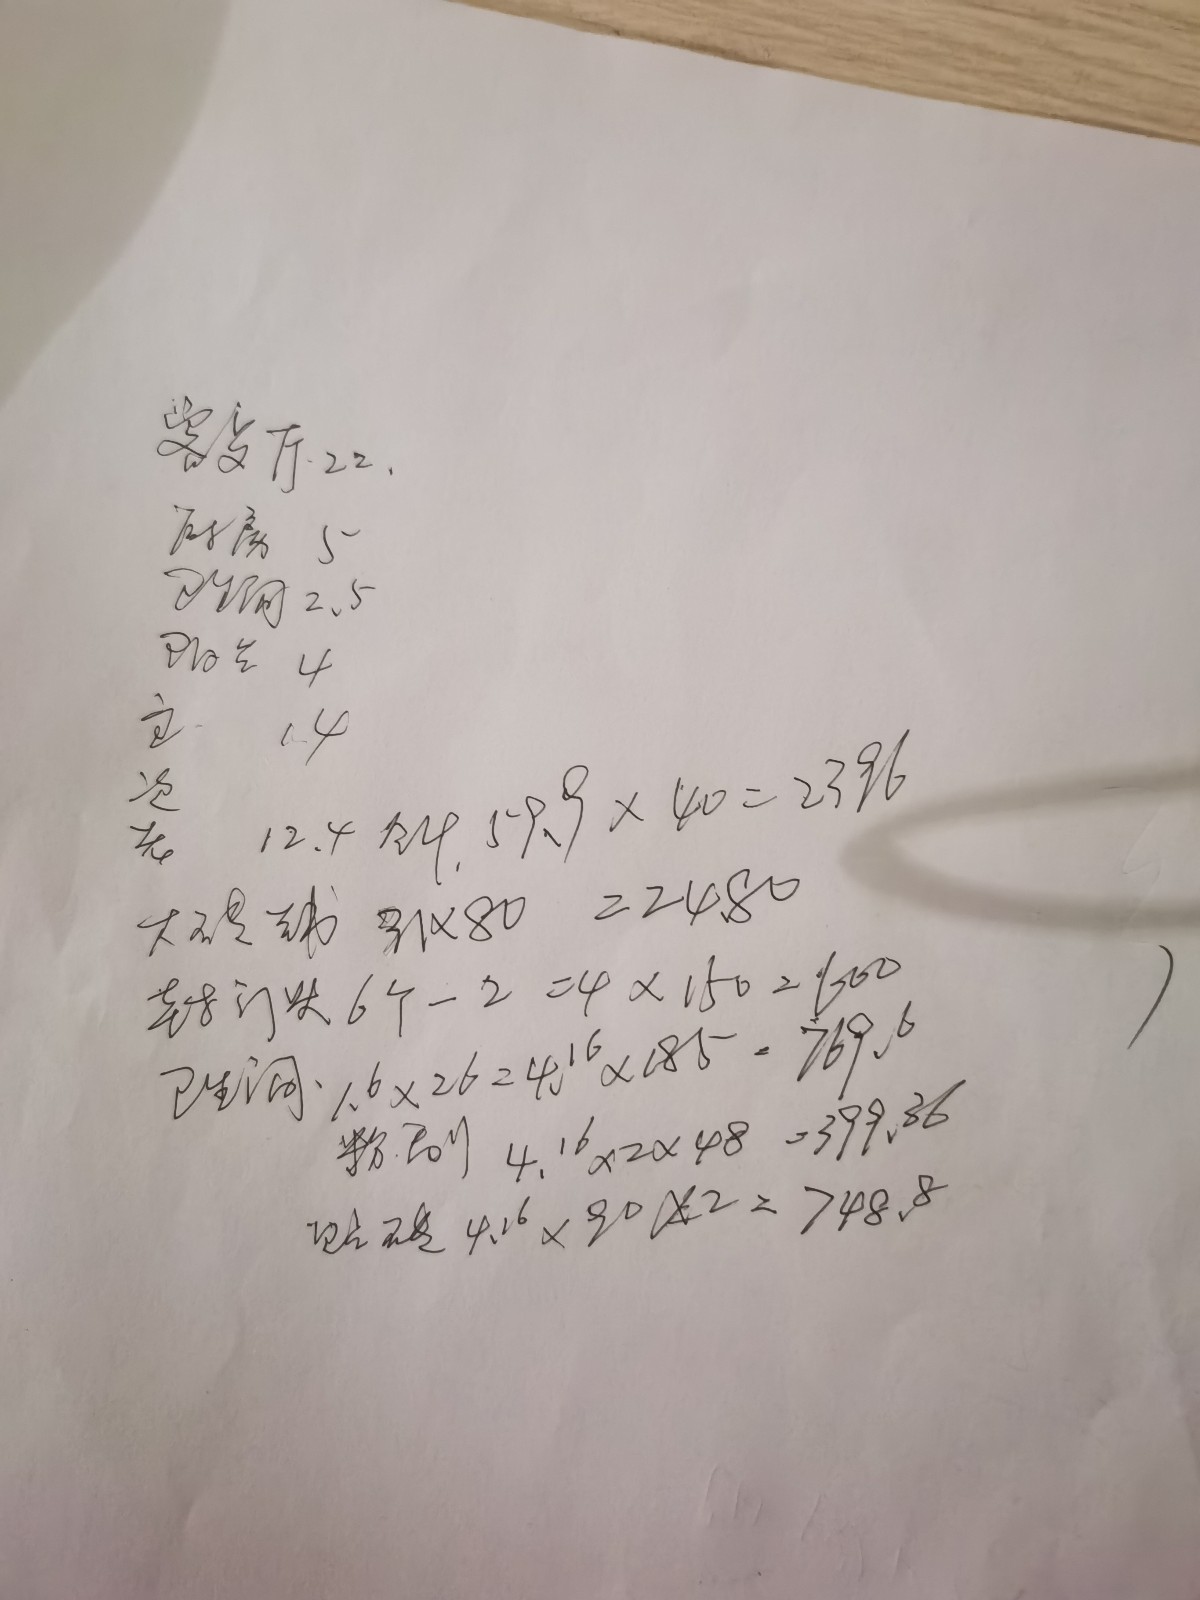 客交厅.22.
厨房 5
卫生间 2.5
阳台 4
主 14
次
老 12.4 合计. 59.9 × 40 = 2396
大砖 31×80 = 2480
门 6个 - 2 = 4 × 150 = 600
卫生间. 1.6 × 26 = 4.16 × 185 = 769.6
粉刷 4.16 × 2 × 48 = 399.36
贴砖 4.16 × 90 × 2 = 748.8